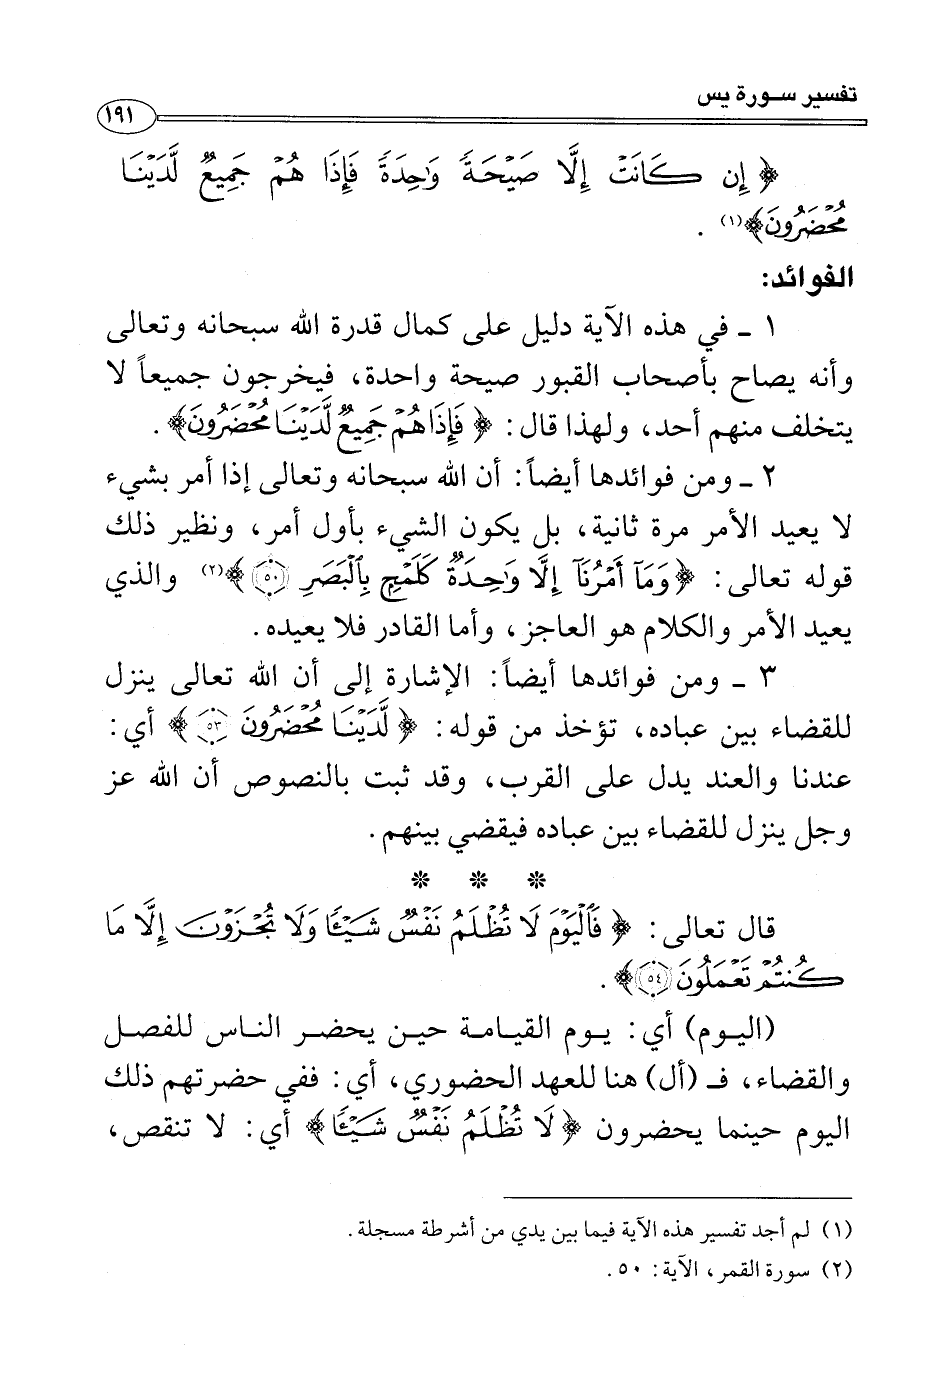 تفسير سورة يس
١٩١
﴿ إِن كَانَتْ إِلَّا صَيْحَةً وَاحِدَةً فَإِذَا هُمْ جَمِيعٌ لَّدَيْنَا
مُحْضَرُونَ﴾(١) .
الفوائد:
١ ـ في هذه الآية دليل على كمال قدرة الله سبحانه وتعالى
وأنه يصاح بأصحاب القبور صيحة واحدة، فيخرجون جميعاً لا
يتخلف منهم أحد، ولهذا قال: ﴿ فَإِذَا هُمْ جَمِيعٌ لَّدَيْنَا مُحْضَرُونَ﴾ .
٢ ـ ومن فوائدها أيضاً: أن الله سبحانه وتعالى إذا أمر بشيء
لا يعيد الأمر مرة ثانية، بل يكون الشيء بأول أمر، ونظير ذلك
قوله تعالى: ﴿ وَمَآ أَمْرُنَآ إِلَّا وَاحِدَةٌ كَلَمْحٍ بِالْبَصَرِ ٥٠﴾(٢) والذي
يعيد الأمر والكلام هو العاجز، وأما القادر فلا يعيده.
٣ ـ ومن فوائدها أيضاً: الإشارة إلى أن الله تعالى ينزل
للقضاء بين عباده، تؤخذ من قوله: ﴿ لَّدَيْنَا مُحْضَرُونَ ٥٣﴾ أي:
عندنا والعند يدل على القرب، وقد ثبت بالنصوص أن الله عز
وجل ينزل للقضاء بين عباده فيقضي بينهم.
* * *
قال تعالى: ﴿ فَالْيَوْمَ لَا تُظْلَمُ نَفْسٌ شَيْئًا وَلَا تُجْزَوْنَ إِلَّا مَا
كُنتُمْ تَعْمَلُونَ ٥٤﴾ .
(اليوم) أي: يوم القيامة حين يحضر الناس للفصل
والقضاء، فـ (أل) هنا للعهد الحضوري، أي: ففي حضرتهم ذلك
اليوم حينما يحضرون ﴿ لَا تُظْلَمُ نَفْسٌ شَيْئًا﴾ أي: لا تنقص،
(١) لم أجد تفسير هذه الآية فيما بين يدي من أشرطة مسجلة.
(٢) سورة القمر، الآية: ٥٠.